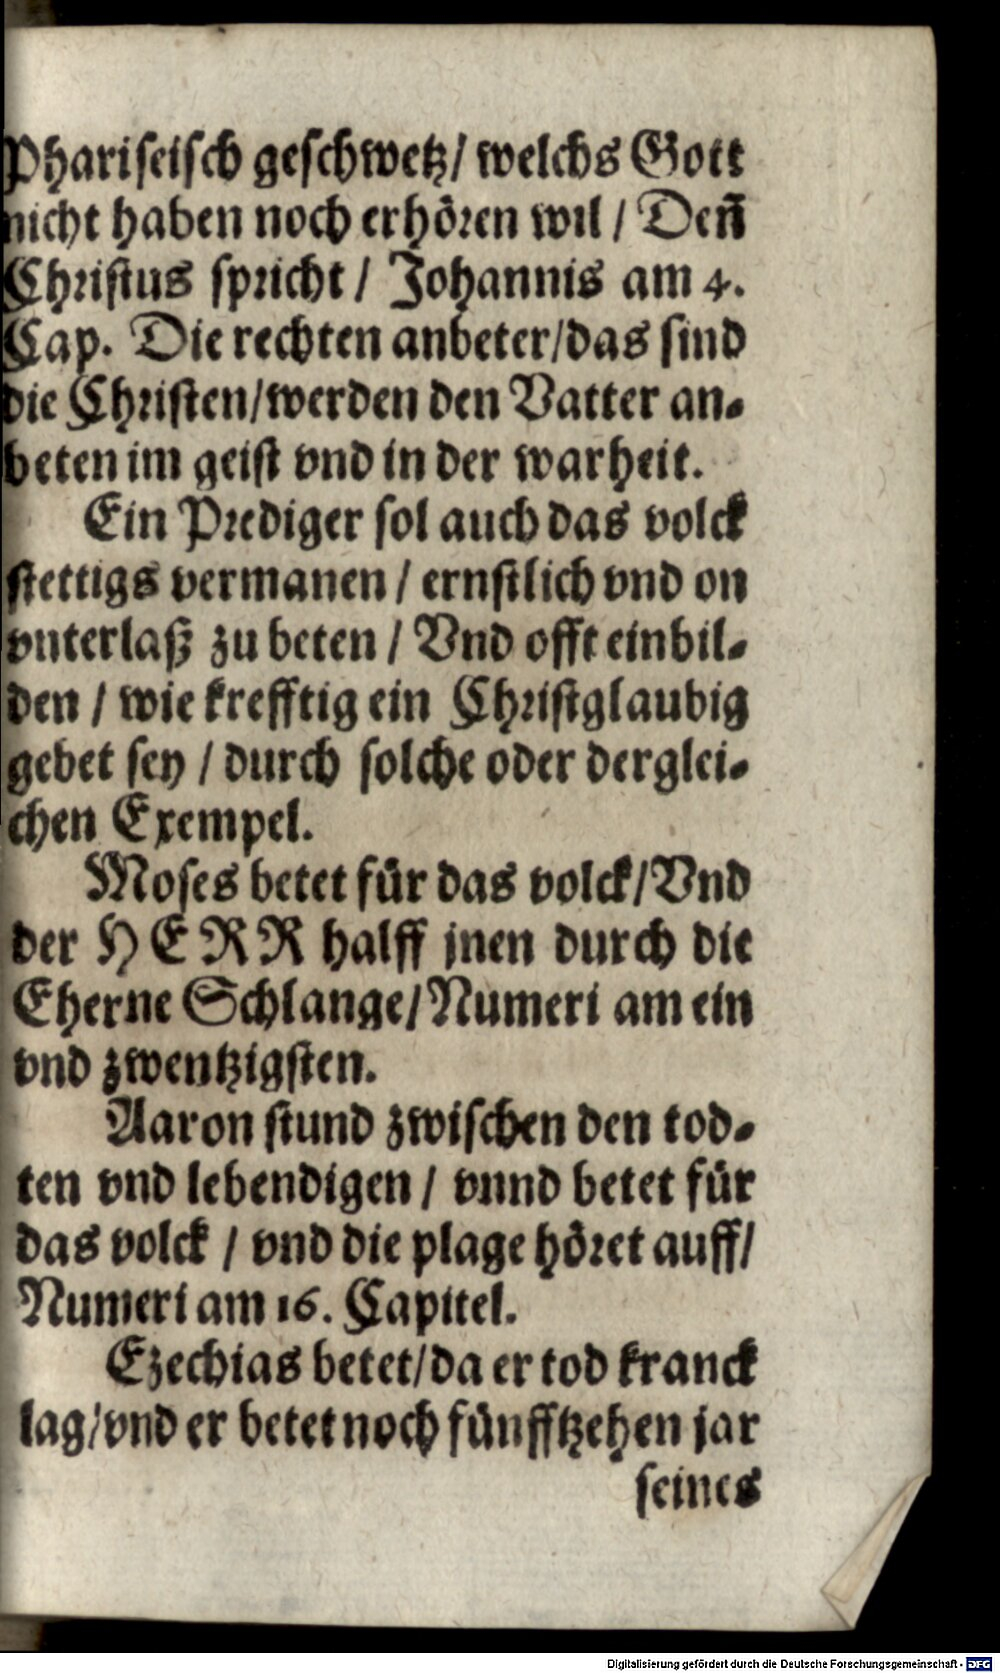 Phariseisch geschwetz / welchs Gott
nicht haben noch erhören wil / Deñ
Christus spricht / Johannis am 4.
Cap. Die rechten anbeter / das sind
die Christen / werden den Vatter an-
beten im geist vnd in der warheit.
Ein Prediger sol auch das volck
stettigs vermanen / ernstlich vnd on
vnterlaß zu beten / Vnd offt einbil-
den / wie krefftig ein Christglaubig
gebet sey / durch solche oder derglei-
chen Exempel.
Moses betet für das volck / Vnd
der HERR halff jnen durch die
Eherne Schlange / Numeri am ein
vnd zwentzigsten.
Aaron stund zwischen den tod-
ten vnd lebendigen / vnnd betet für
das volck / vnd die plage höret auff /
Numeri am 16. Capitel.
Ezechias betet / da er tod kranck
lag / vnd er betet noch fünfftzehen jar
seines
Digitalisierung gefördert durch die Deutsche Forschungsgemeinschaft - DFG